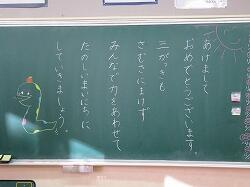 あけまして
おめでとうございます。
三がっきも
さむさにまけず
みんなで力をあわせて、
たのしいまいにちに
していきましょう。